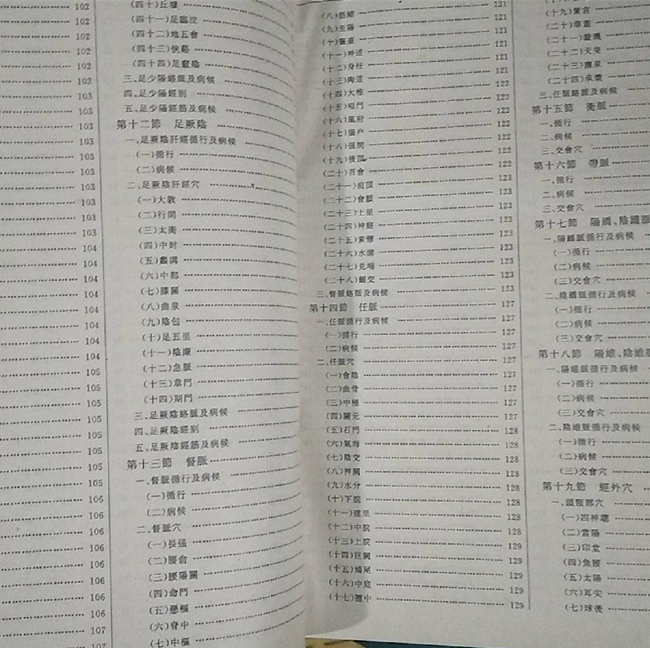 102
102
102
102
102
103
103
103
103
103
103
103
103
103
104
104
104
104
104
104
104
105
105
105
105
105
105
106
106
106
106
106
106
106
106
107
(四十)丘墟
(四十一)足臨泣
(四十二)地五會
(四十三)俠谿
(四十四)足竅陰
三、足少陽絡脈及病候
四、足少陽經別
五、足少陽經筋及病候
第十二節 足厥陰
一、足厥陰肝經循行及病候
(一)循行
(二)病候
二、足厥陰肝經穴
(一)大敦
(二)行間
(三)太衝
(四)中封
(五)蠡溝
(六)中都
(七)膝關
(八)曲泉
(九)陰包
(十)足五里
(十一)陰廉
(十二)急脈
(十三)章門
(十四)期門
三、足厥陰絡脈及病候
四、足厥陰經別
五、足厥陰經筋及病候
第十三節 督脈
一、督脈循行及病候
(一)循行
(二)病候
二、督脈穴
(一)長強
(二)腰俞
(三)腰陽關
(四)命門
(五)懸樞
(六)脊中
(七)中樞
(八)筋縮 121
(九)至陽 121
(十)靈臺 121
(十一)神道 121
(十二)身柱 121
(十三)陶道 121
(十四)大椎 122
(十五)瘂門 122
(十六)風府 122
(十七)腦户 122
(十八)強間 122
(十九)後頂 122
(二十)百會 122
(二十一)前頂 122
(二十二)會 122
(二十三)上星 123
(二十四)神庭 123
(二十五)素髎 123
(二十六)水溝 123
(二十七)兑端 123
(二十八)齦交 123
三、督脈絡脈及病候 123
第十四節 任脈 127
一、任脈循行及病候 127
(一)循行 127
(二)病候 127
二、任脈穴 127
(一)會陰 127
(二)曲骨 127
(三)中極 127
(四)關元 127
(五)石門 128
(六)氣海 128
(七)陰交 128
(八)神闕 128
(九)水分 128
(十)下脘 128
(十一)建里 128
(十二)中脘 128
(十三)上脘 129
(十四)巨闕 129
(十五)鳩尾 129
(十六)中庭 129
(十七)膻中 129
(十九)紫宮
(二十)華蓋
(二十一)璇璣
(二十二)天突
(二十三)廉泉
(二十四)承漿
三、任脈絡脈及病候
第十五節 衝脈
一、循行
二、病候
三、交會穴
第十六節 帶脈
一、循行
二、病候
三、交會穴
第十七節 陽蹻、陰蹻脈
一、陽蹻脈循行及病候
(一)循行
(二)病候
(三)交會穴
二、陰蹻脈循行及病候
(一)循行
(二)病候
(三)交會穴
第十八節 陽維、陰維脈
一、陽維脈循行及病候
(一)循行
(二)病候
(三)交會穴
二、陰維脈循行及病候
(一)循行
(二)病候
(三)交會穴
第十九節 經外穴
一、頭頸部穴
(一)四神聰
(二)當陽
(三)印堂
(四)魚腰
(五)太陽
(六)耳尖
(七)球後